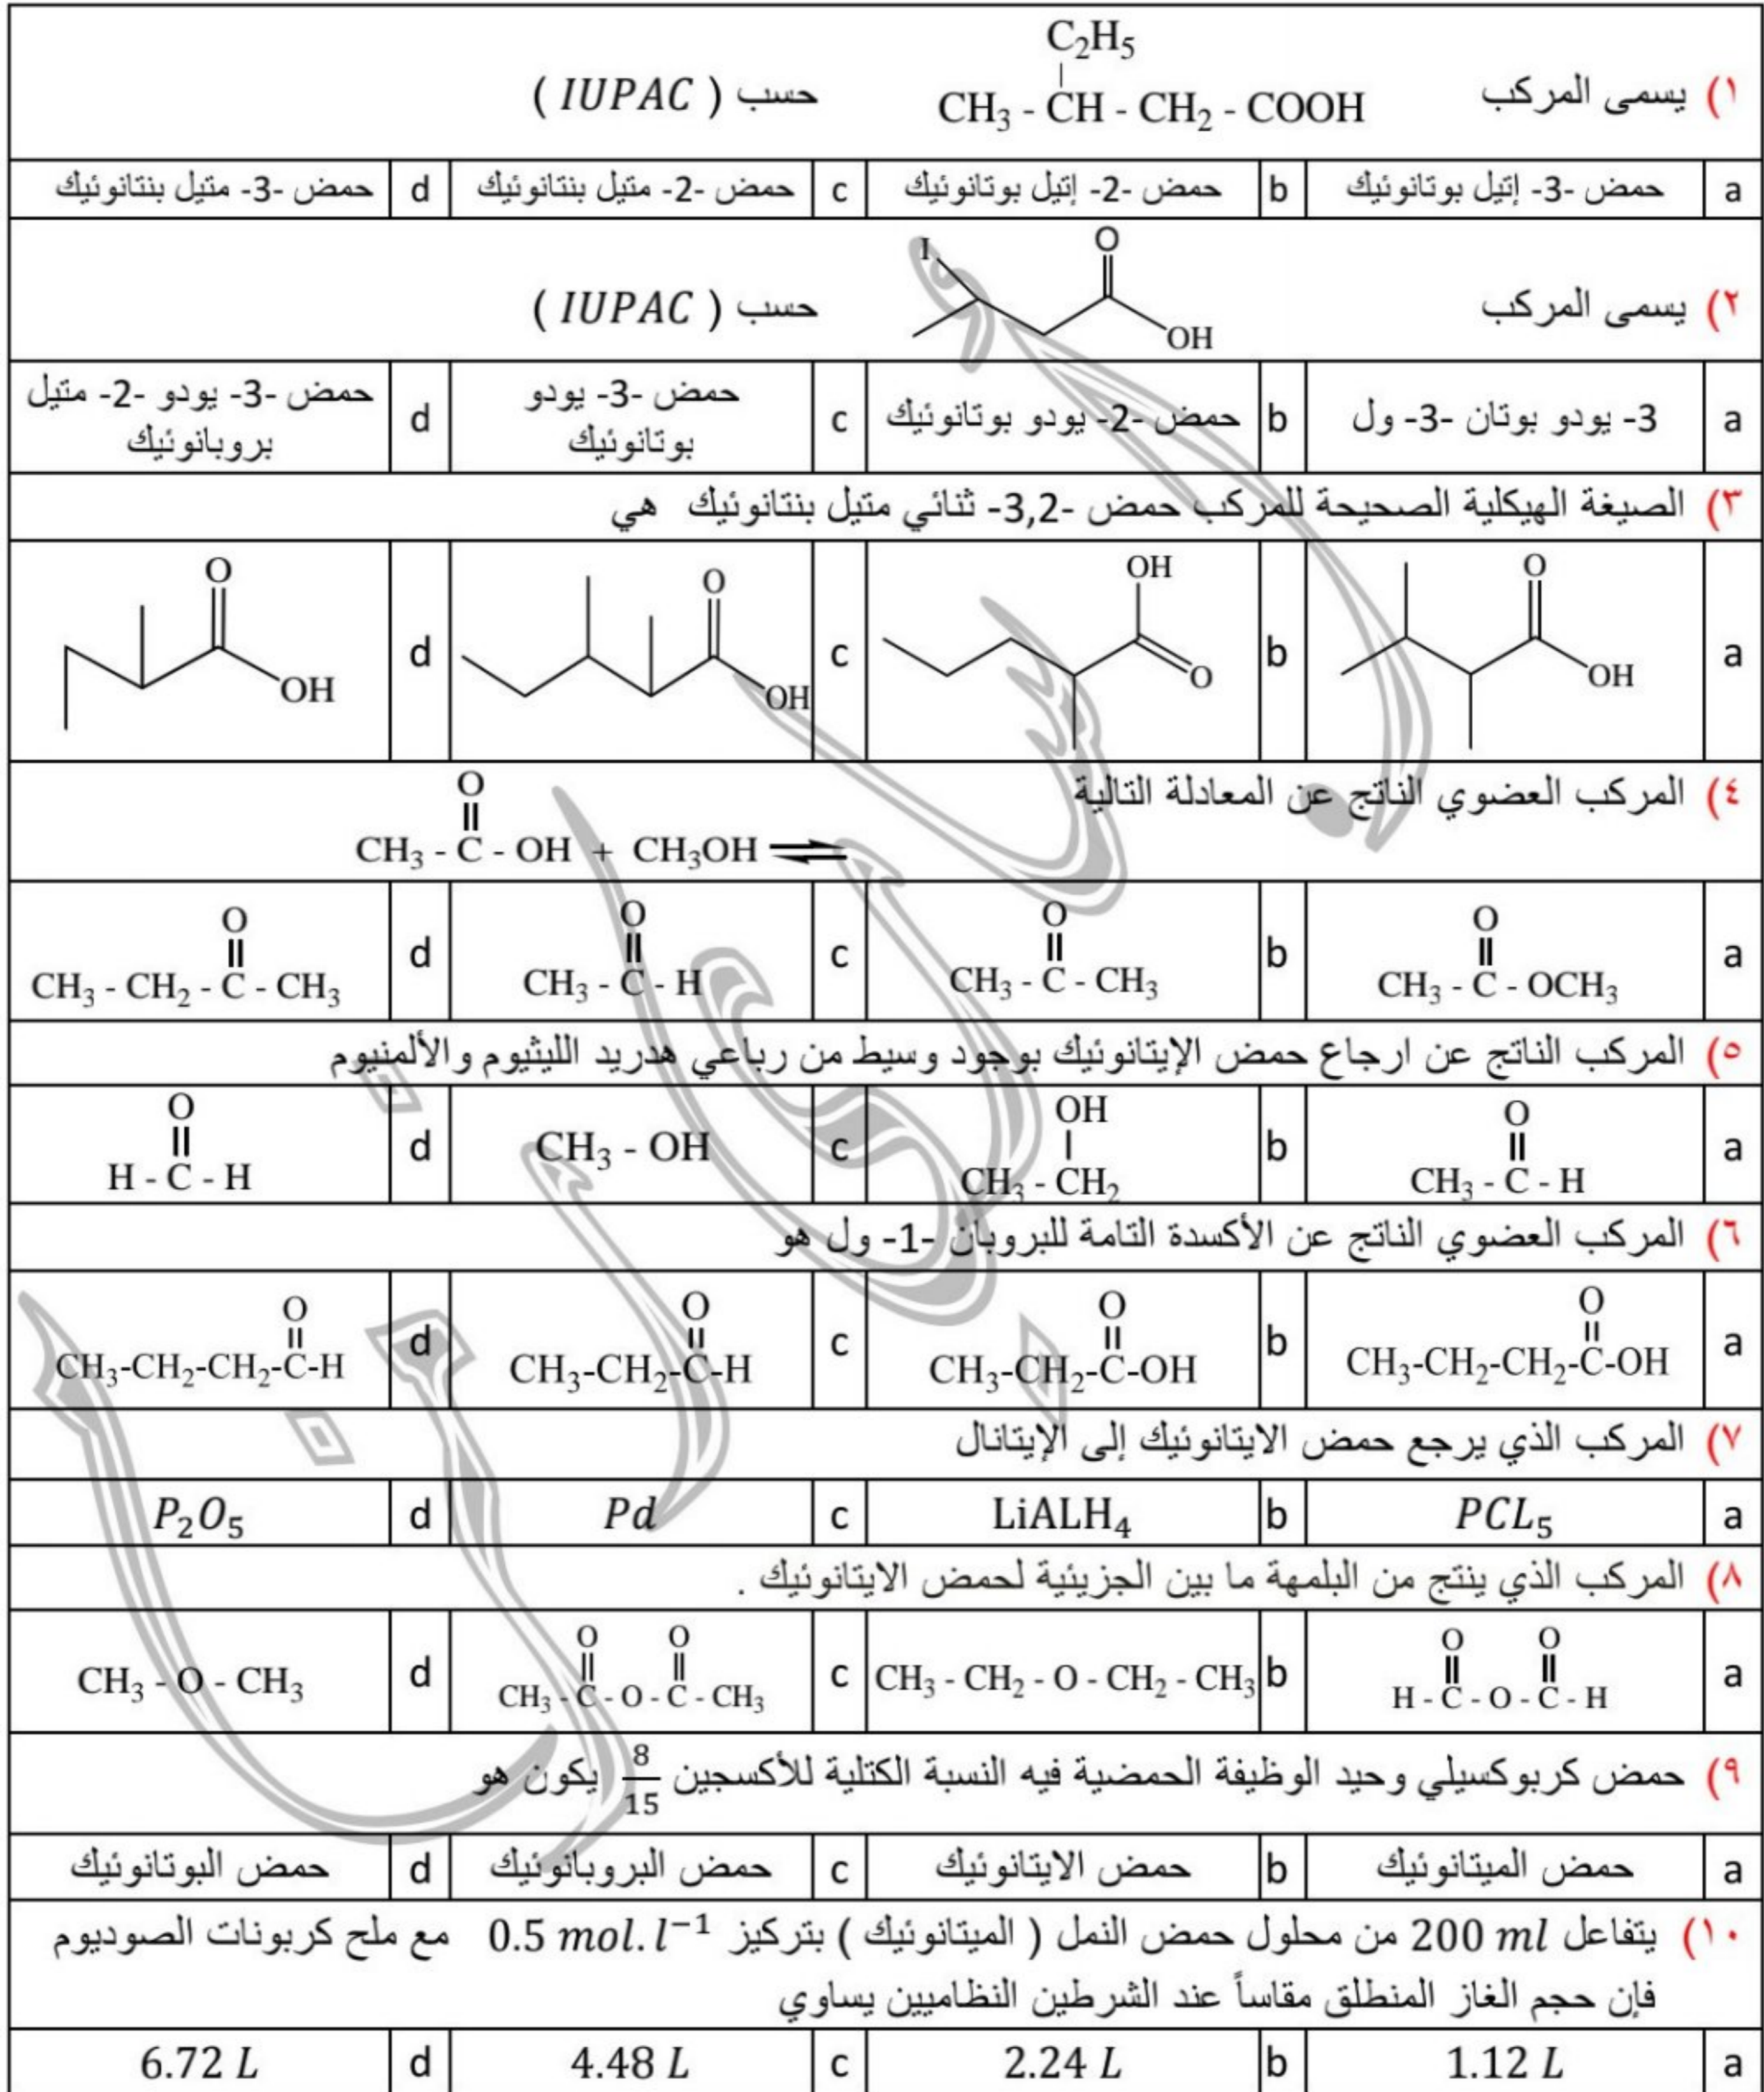 C₂H₅
١) يسمى المركب CH₃ - CH - CH₂ - COOH حسب ( IUPAC )
a حمض -3- إتيل بوتانوئيك b حمض -2- إتيل بوتانوئيك c حمض -2- متيل بنتانوئيك d حمض -3- متيل بنتانوئيك
I O
٢) يسمى المركب حسب ( IUPAC )
OH
a 3- يودو بوتان -3- ول b حمض -2- يودو بوتانوئيك c حمض -3- يودو بوتانوئيك d حمض -3- يودو -2- متيل بروبانوئيك
٣) الصيغة الهيكلية الصحيحة للمركب حمض -3,2- ثنائي متيل بنتانوئيك هي
a O OH b OH O c O OH d O OH
٤) المركب العضوي الناتج عن المعادلة التالية
O
CH₃ - C - OH + CH₃OH ⇌
O O O O
a CH₃ - C - OCH₃ b CH₃ - C - CH₃ c CH₃ - C - H d CH₃ - CH₂ - C - CH₃
٥) المركب الناتج عن ارجاع حمض الإيتانوئيك بوجود وسيط من رباعي هدريد الليثيوم والألمنيوم
O OH O
a CH₃ - C - H b CH₃ - CH₂ c CH₃ - OH d H - C - H
٦) المركب العضوي الناتج عن الأكسدة التامة للبروبان -1- ول هو
O O O O
a CH₃-CH₂-CH₂-C-OH b CH₃-CH₂-C-OH c CH₃-CH₂-C-H d CH₃-CH₂-CH₂-C-H
٧) المركب الذي يرجع حمض الايتانوئيك إلى الإيتانال
a PCL₅ b LiALH₄ c Pd d P₂O₅
٨) المركب الذي ينتج من البلمهة ما بين الجزيئية لحمض الايتانوئيك .
O O O O
a H - C - O - C - H b CH₃ - CH₂ - O - CH₂ - CH₃ c CH₃ - C - O - C - CH₃ d CH₃ - O - CH₃
٩) حمض كربوكسيلي وحيد الوظيفة الحمضية فيه النسبة الكتلية للأكسجين 8/15 يكون هو
a حمض الميتانوئيك b حمض الايتانوئيك c حمض البروبانوئيك d حمض البوتانوئيك
١٠) يتفاعل 200 ml من محلول حمض النمل ( الميتانوئيك ) بتركيز 0.5 mol.l⁻¹ مع ملح كربونات الصوديوم
فإن حجم الغاز المنطلق مقاساً عند الشرطين النظاميين يساوي
a 1.12 L b 2.24 L c 4.48 L d 6.72 L